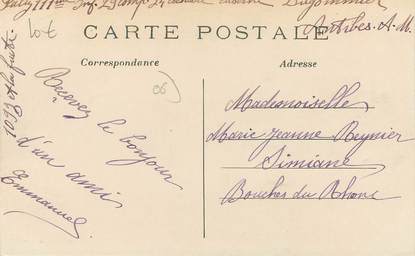 111ème Inf. 29 Comp. caserne Dugommier
Antibes. A. M.
Lot
CARTE POSTALE
Correspondance
Adresse
06
Recevez le bonjour
d'un ami
Emmanuel
Mademoiselle
Marie Jeanne Reynier
Simiane
Bouches du Rhone